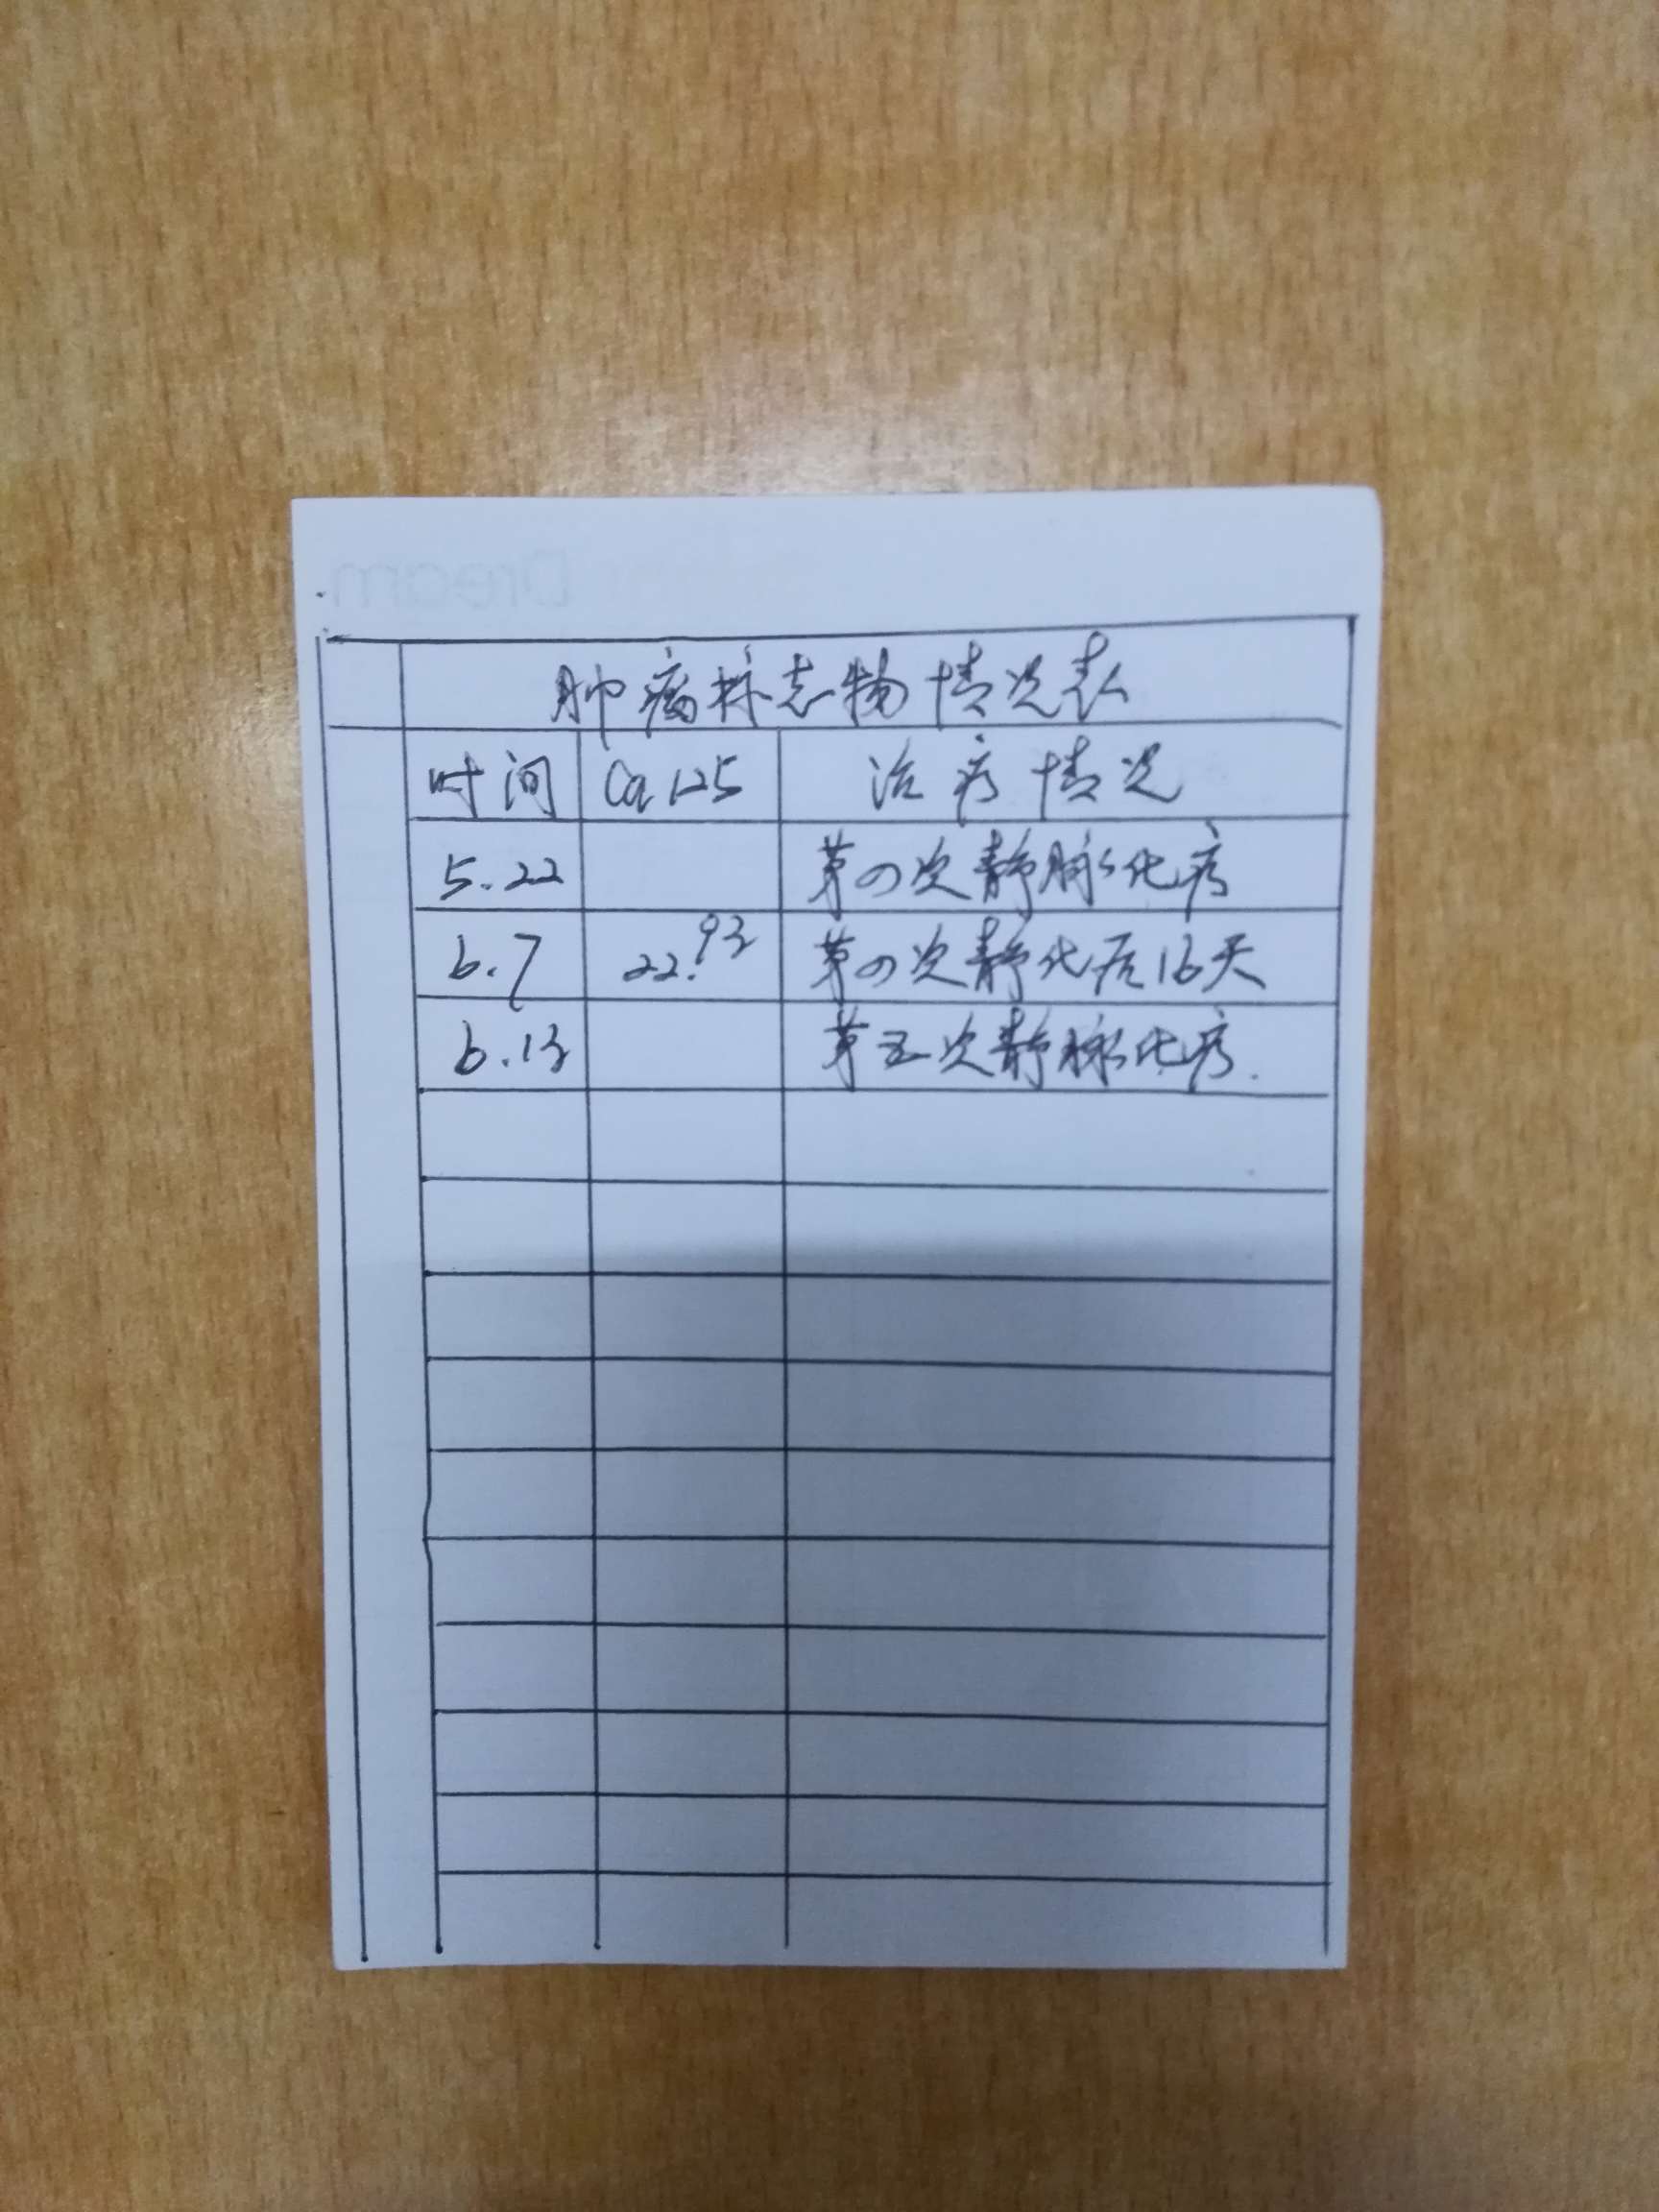 Dream
肿瘤标志物情况表
时间 Ca125 治疗情况
5.22 第四次静脉化疗
6.7 22.93 第四次静化后16天
6.13 第五次静脉化疗.